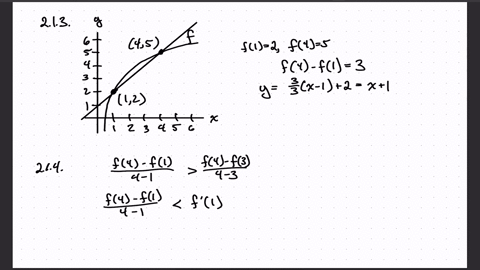 2.1.3.
y
6
5
4
3
2
1
(4,5)
f
(1,2)
1 2 3 4 5 6
x
f(1)=2, f(4)=5
f(4)-f(1)=3
y= 3/3(x-1)+2=x+1
2.1.4.
f(4)-f(1)/4-1 > f(4)-f(3)/4-3
f(4)-f(1)/4-1 < f'(1)